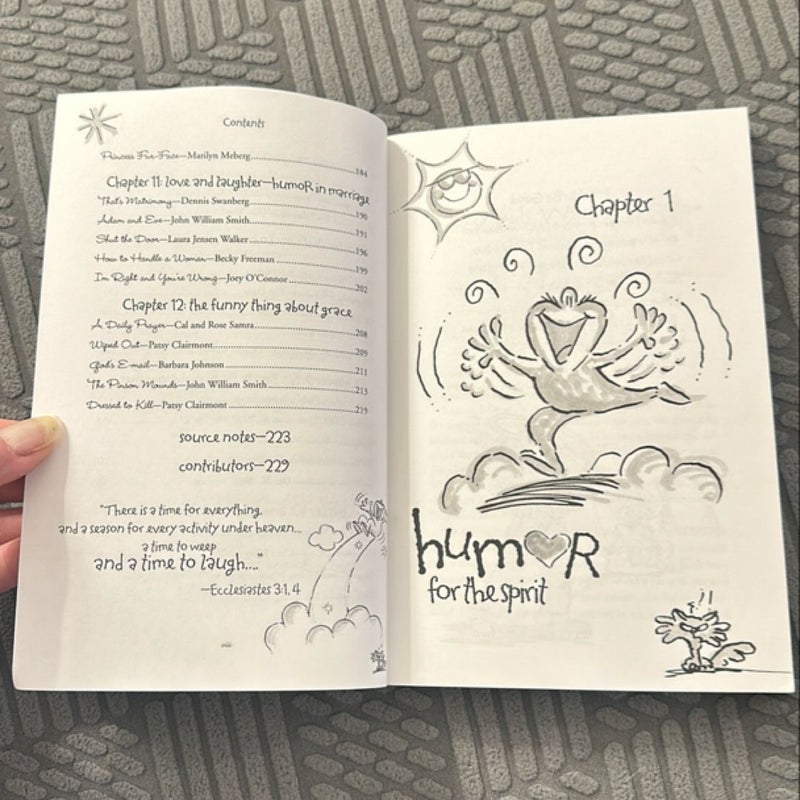 Contents
Princess Fur-Face—Marilyn Meberg....184
Chapter 11: love and laughter—humoR in marriage
That's Matrimony—Dennis Swanberg....190
Adam and Eve—John William Smith....191
Shut the Door—Laura Jensen Walker....196
How to Handle a Woman—Becky Freeman....199
I'm Right and You're Wrong—Joey O'Connor....202
Chapter 12: the funny thing about grace
A Daily Prayer—Cal and Rose Samra....208
Wiped Out—Patsy Clairmont....209
God's E-mail—Barbara Johnson....211
The Pinson Mounds—John William Smith....213
Dressed to Kill—Patsy Clairmont....219
source notes—223
contributors—229
"There is a time for everything,
and a season for every activity under heaven...
a time to weep
and a time to laugh...."
—Ecclesiastes 3:1, 4
Chapter 1
humoR
for the spirit